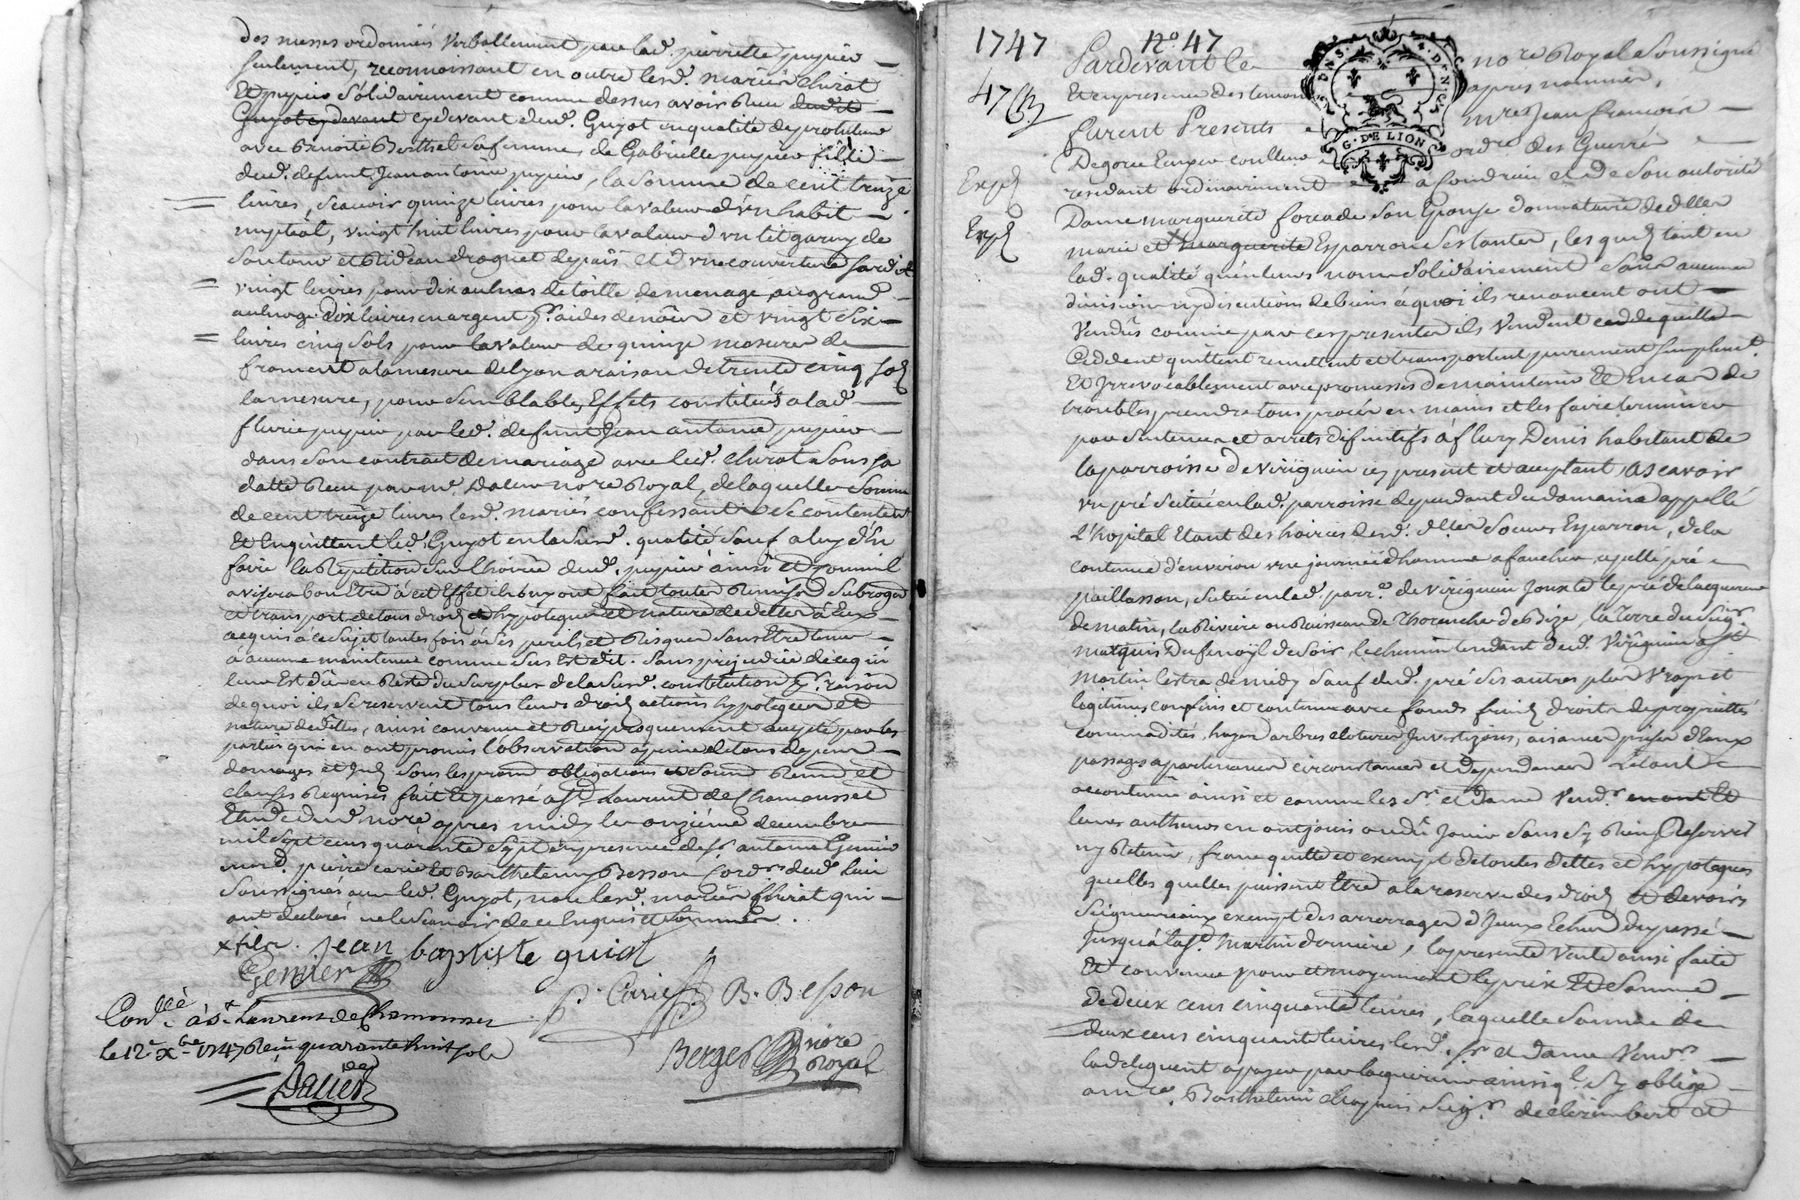 des messes ordonnées verballement par lad. pierrette pupier
seulement, reconnoissant en outre lesd. mariés Chirat
Et pupier Solidairement comme dessus avoir Reçu dud. et
Guyot cydevant cydevant dud. Guyot en qualité de protuteur
avec Benoite Berthet sa femme de Gabrielle pupier fille
dud. defunt Jean antoine pupier, la Somme de cent treize
livres, Scavoir quinze livres pour la valeur d'un habit
nuptial, vingt huit livres pour la valeur d'un lit garny de
Son tour et Rideau droguet de païs et d'une couverture
vingt livres pour dix aulnes de toille de menage au grand
aulnage dix livres en argent et vingt Six
livres cinq Sols pour la valeur de quinze mesures de
froment a la mesure de Lyon a raison de trente cinq Sols
la mesure, pour Semblables Effets constitués a lad.
pupier par led. defunt Jean antoine pupier
dans Son contrat de mariage avec led. Chirat Sous Sa
datte Reçu par me. Dalier no.re Royal, de laquelle Somme
de cent treize livres lesd. mariés confessants Se contentent
Et En quittent led. Guyot en lad. qualité Sauf a luy d'En
faire la Repetition Sur l'hoirie dud. pupier ainsi et comm'il
avisera bon Etre à cet Effet ils luy ont fait toutes Remises Subrogation
et transport de tous droits et hypoteques et nature de dettes à Eux
acquis a ce Sujet toutes fois à Ses perils et Risques Sans Etre tenus
a aucune maintenue comme Sus Est dit. Sans prejudice de ce qui
leur Est dû en Reste du Surplus de lad. constitution pr. raison
de quoi ils Se reservent tous leurs droits actions hypoteques et
nature de dettes, ainsi convenu et Reciproquement accepté par les
parties qui en ont promis l'observation a peine de tous depens
domages et Sous les obligations et
clauses Requises fait Et passé a St. Laurent de Chamousset
Etude dud. no.re apres midy le onzième decembre
mil Sept cens quarante Sept en presence de Sr. antoine Genier
pierre carie et Barthelemy Besson dud. lieu
Soussignés avec led. Guyot, non lesd. mariés Chirat qui
ont declarés ne le Scavoir de ce Enquis et Sommés.
jean baptiste guiot
Genier
P. Carie B. Besson
Conllé à St. Laurent de Chamousset
le 12e Xbre 1747 Reçu quarante huit Sols
Dalier
Berger no.re Royal
1747 No. 47
Pardevant le no.re Royal Soussigné
47
Et en presence des temoins apres nommés,
furent Presents mre Jean francois
Degorce Ecuyer des Guerres
Expé
residant ordinairement a Condrieu et de Son autorité
Expé
Dame marguerite forcade Son Epouse donnataire de dlles
marie et marguerite Esparron Ses tantes, lesquels tant en
lad. qualité qu'en leurs noms Solidairement Sans aucune
division ny discutions de biens à quoi ils renoncent ont
Vendûs comme par ces presentes ils Vendent
Ceddent quittent remettent et transportent purement Simplemt.
Et Irrevocablement avec promesses de maintenir Et En cas de
troubles prendre tous procés en mains et les faire terminer
par Sentences et arrets difinitifs à fleury Denis habitant de
la parroisse de Virigneu icy present et acceptant, a Scavoir
un pré Scitué en lad. parroisse dependant du domaine appellé
L'hopital Etant des hoiries desd. dlles Soeurs Esparron, de la
contenue d'environ une journée d'homme a faucher appellé pré
paillasson, Scitué en lad. parr.e de Virigneu Jouxte le pré de lacquereur
de matin, la Riviere ou Ruisseau de Thorenche de Bize, la terre du Seigr.
marquis Dufenoÿl de Soir, le chemin tendant dud. Virigneu a St.
Martin Lestra de midy Sauf dud. pré Ses autres plus Vrays et
legitimes confins et contenue avec fonds fruits droits de proprietés
commodités, hayes arbres clotures Investizons, aisances prises d'Eaux
passages apartenances circonstances et dependances
contenue ainsi et comme les Sr. et Dame Vendrs. en ont Et
leurs autheurs en ont joui ou dû Jouir Sans S'y Rien Reserver
ny Retenir, franc quitte et exempt de toutes dettes et hypoteques
quelles quelles puissent Etre a la reserve des droits et devoirs
Seigneuriaux exempt des arrerages d'Iceux Echus du passé
Jusqu'à la St. Martin derniere, la presente Vente ainsi faite
Et convenue pour et moyennant le prix Et Somme
de deux cens cinquante livres, laquelle Somme de
deux cens cinquante livres lesd. Sr. et dame Vendrs.
ladeleguent a payer par lacquereur ainsi ql. S'y oblige
a mre. Barthelemi chapuis Seigr. de clerimbert et
G. DE LION